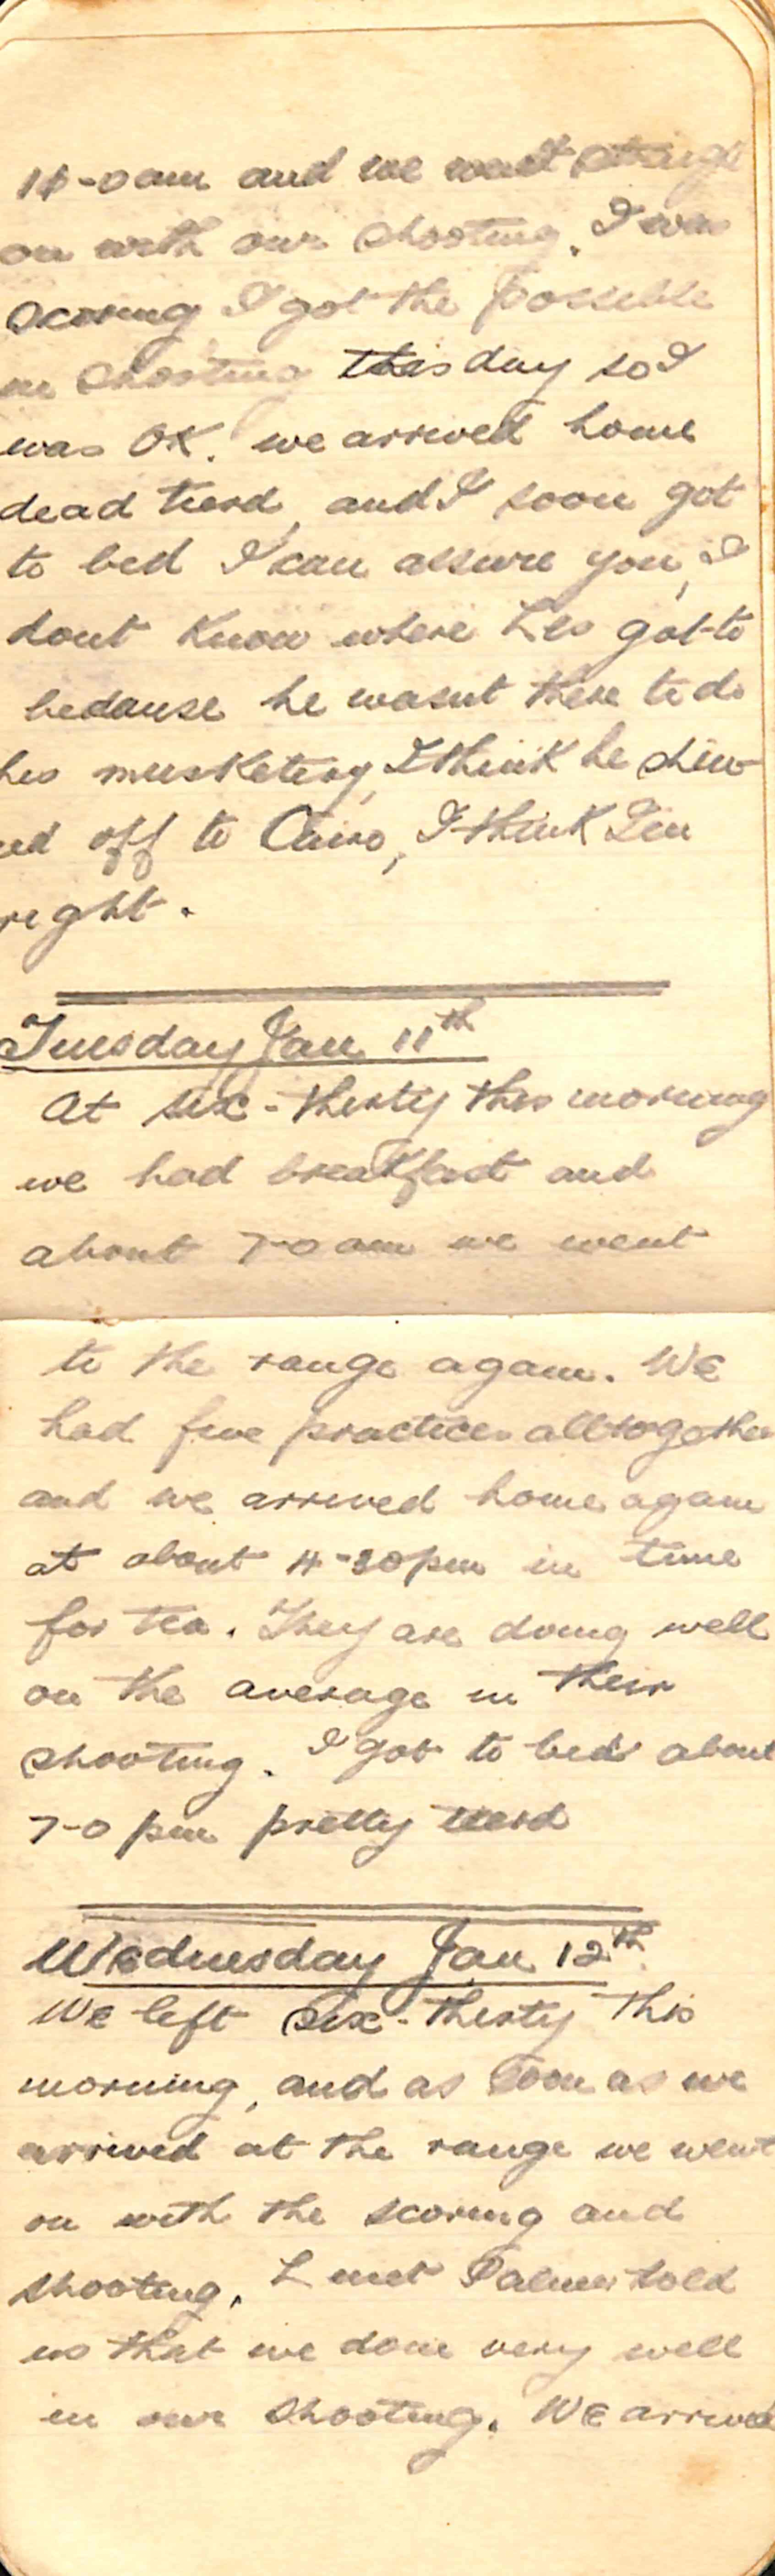 10-0am and we went straight
on with our shooting. I was
scoring I got the possible
in shooting this day so I
was OK. we arrived home
dead tierd, and I soon got
to bed I can assure you, I
dont know where Les got to
bedause he wasnt there to do
his musketery, I think he skiv-
ed off to Cairo, I think Im
right.
Tuesday Jan 11th
At six-thirty this morning
we had breakfast and
about 7-0am we went
to the range again. We
had five practices alltogether
and we arrived home again
at about 4-30pm in time
for tea. They are doing well
on the average in their
shooting. I got to bed about
7-0 pm pretty tierd
Wednesday Jan 12th
We left six-thirty this
morning, and as soon as we
arrived at the range we went
on with the scoring and
shooting. Palmer told
us that we done very well
in our shooting. We arrived